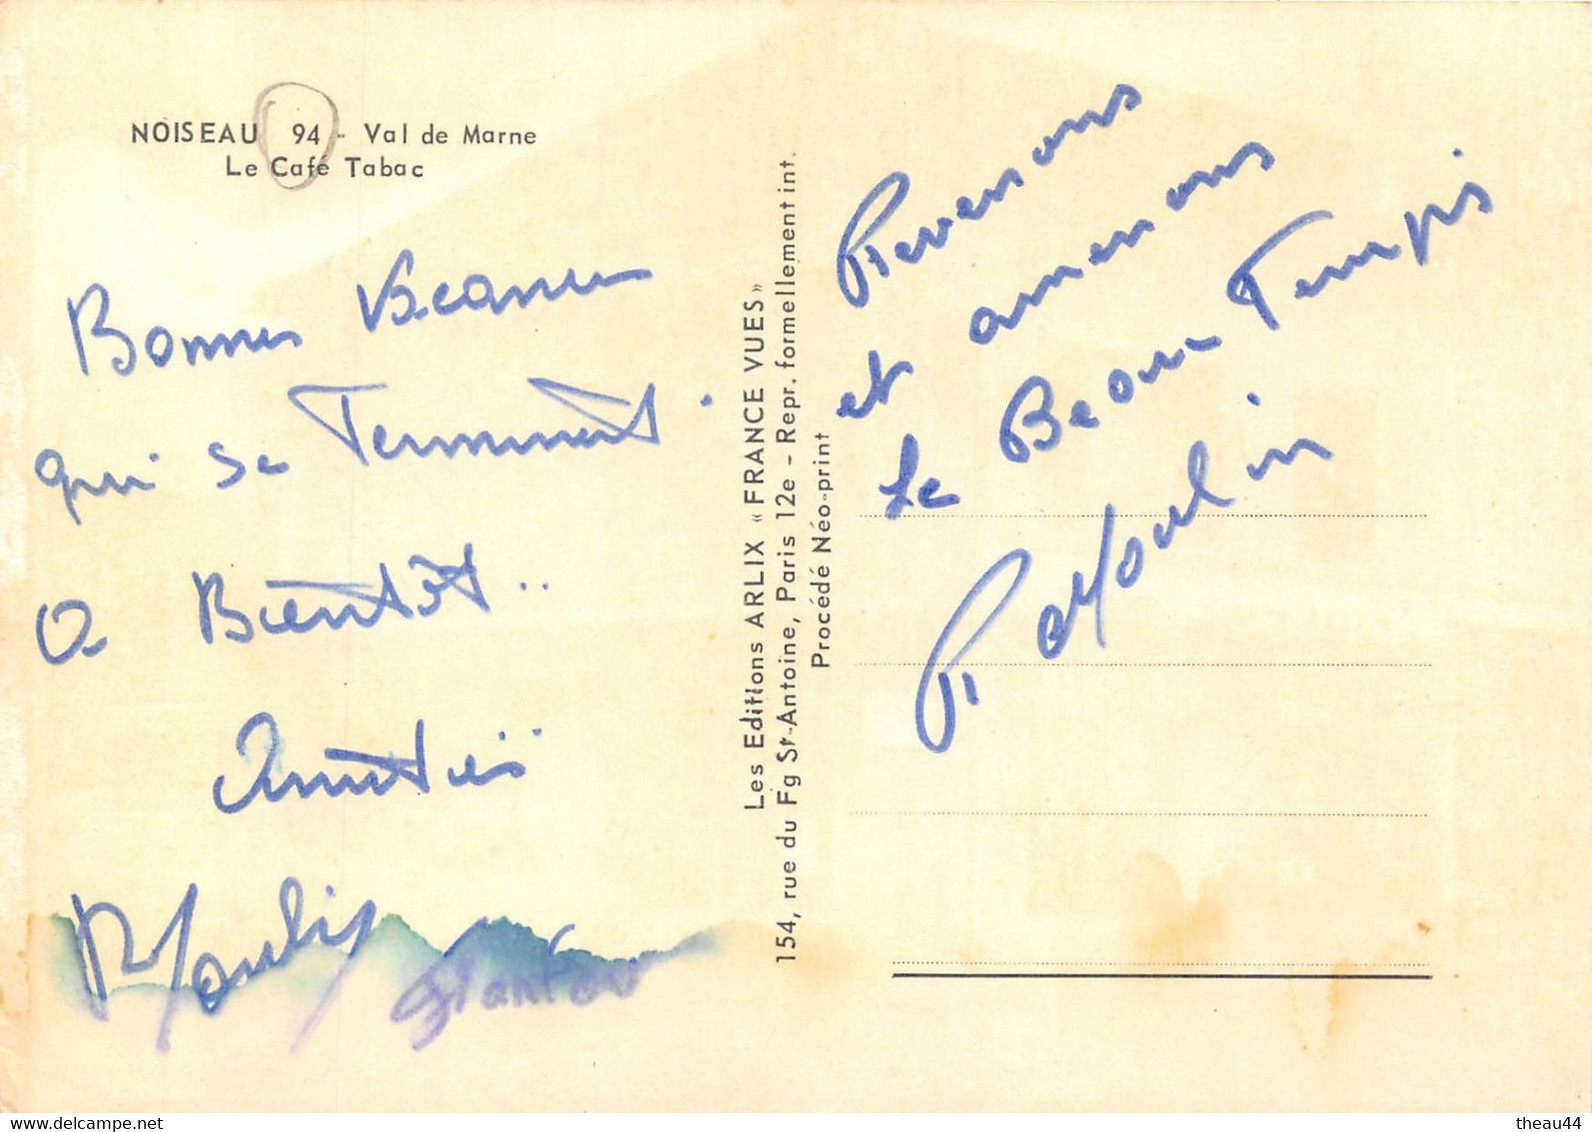 NOISEAU 94 - Val de Marne
Le Café Tabac
Bonnes Vacances
qui se Terminent.
a Bientôt..
Amitiés
Les Editions ARLIX « FRANCE VUES »
154, rue du Fg St-Antoine, Paris 12e - Repr. formellement int.
Procédé Néo-print
Revenons
et amenons
Le Beau Temps
delcampe.net
theau44